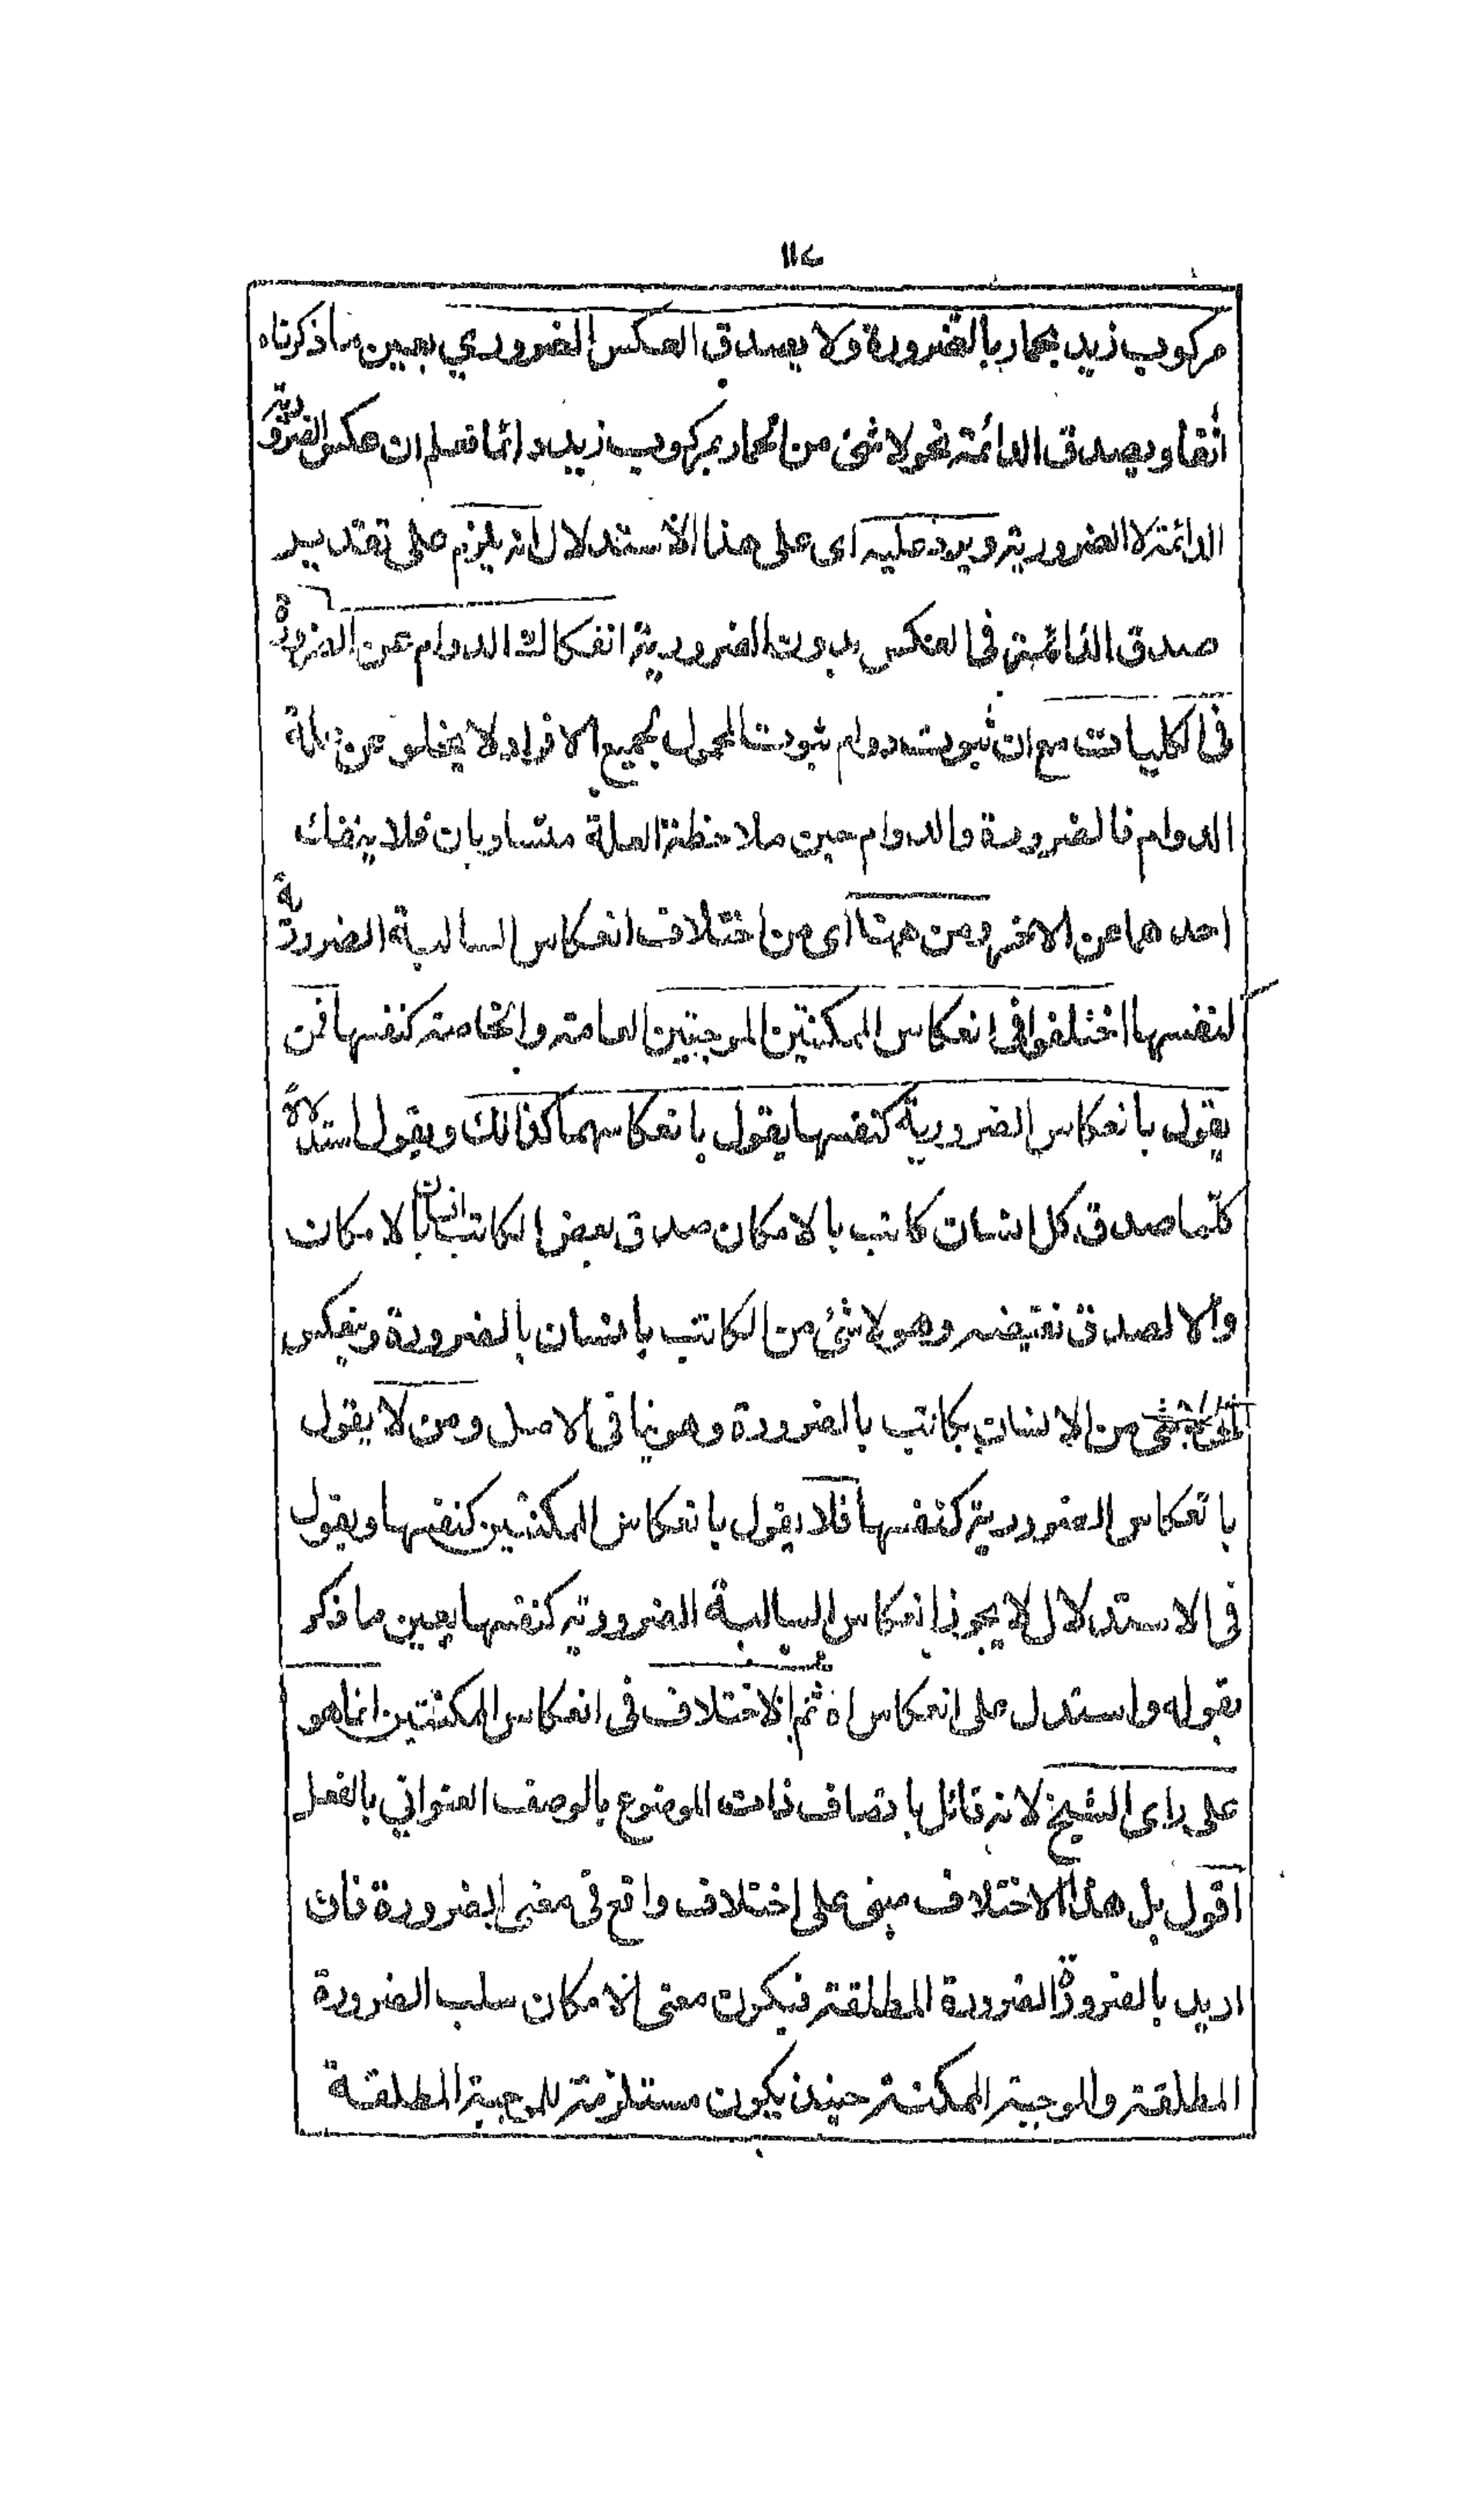 ١١٤
مركوب زيد بحمار بالضرورة ولا يصدق العكس الضروري بعين ما ذكرناه
انفا ويصدق الدائمة نحو لا شئ من الحمار بمركوب زيد دائما فعلم ان عكس الضرورية
الدائمة لا الضرورية ويرد عليه اى على هذا الاستدلال انه يلزم على تقدير
صدق الدائمة فى العكس بدون الضرورية انفكاك الدوام عن الضرورة
فى الكليات مع ان ثبوت دوام ثبوت المحمول لجميع الافراد لا يخلو عن علة
الدوام فالضرورة والدوام حين ملاحظة العلة متساويان فلا ينفك
احدهما عن الاخر ومن ههنا اى من اختلاف انعكاس السالبة الضرورية
لنفسها اختلفوا فى انعكاس الممكنتين الموجبتين العامة والخاصة كنفسها فمن
يقول بانعكاس الضرورية كنفسها يقول بانعكاسهما كذالك ويقول استدلالا
كلما صدق كل انسان كاتب بالامكان صدق بعض الكاتب انسان بالامكان
والا لصدق نقيضه وهو لا شئ من الكاتب بانسان بالضرورة وينعكس
من الانسان بكاتب بالضرورة وهو ينافى الاصل ومن لا يقول
بانعكاس الضرورية كنفسها فلا يقول بانعكاس الممكنتين كنفسها ويقول
فى الاستدلال لا يجوز انعكاس السالبة الضرورية كنفسها بعين ما ذكر
بقوله واستدل على انعكاس اه ثم الاختلاف فى انعكاس الممكنتين انما هو
على راى الشيخ لانه قائل باتصاف ذات الموضوع بالوصف العنوانى بالفعل
اقول بل هذا الاختلاف مبنى على اختلاف واقع فى معنى الضرورة فان
اريد بالضرورة الضرورة المطلقة فيكون معنى الامكان سلب الضرورة
المطلقة والموجبة الممكنة حينئذ يكون مستلزمة للموجبة المطلقة